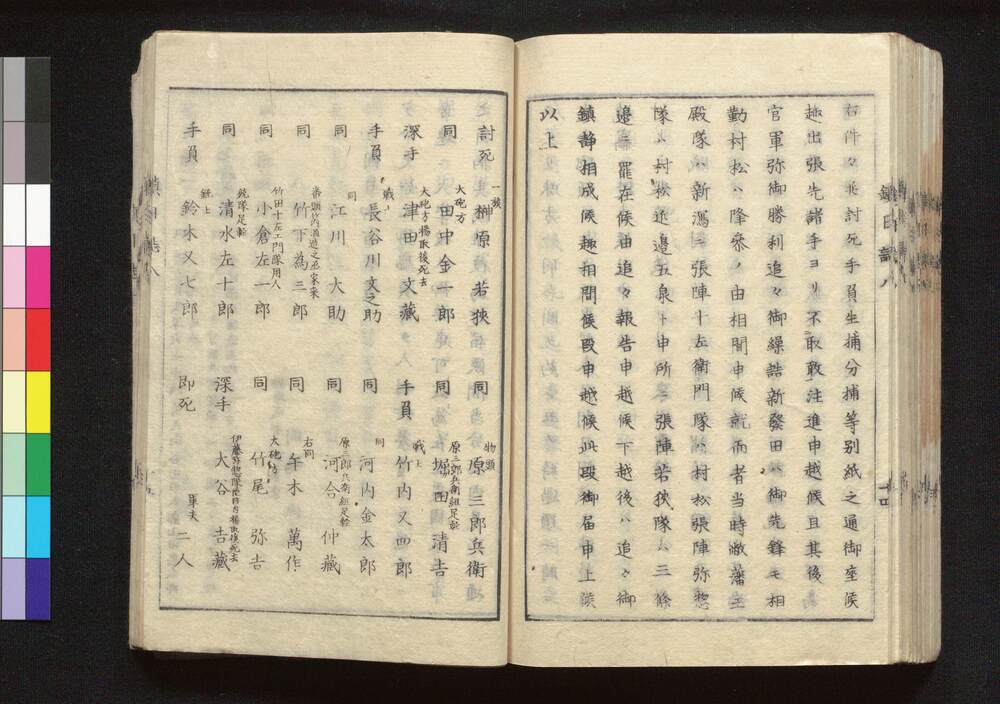 右件々乗討死手負生捕分捕等別紙之通御座候
趣出張先諸手ヨリ不取敢注進申越候且其後
官軍弥御勝利追々御繰詰新發田ハ御先鋒モ相
勤村松ハ降参ノ由相聞申候就而者当時敝藩主
殿隊ハ新潟ニ張陣十左衛門隊ハ村松張陣弥惣
隊ハ村松近邊五泉ト申所ニ張陣若狭隊ハ三條
邊ニ罷在候由追々報告申越候下越後ハ追々御
鎮静相成候趣相聞候段申越候此段御届申上候
以上
討死 榊原若狭 同 物頭 原三郎兵衛
同 大砲方 田中金一郎 同 原三郎兵衛組足軽 堀田清吉
深手 大砲方揚取後死去 津田文藏 手負 竹内又四郎
手負 戦士 長谷川文之助 同 同 河内金太郎
同 同 江川大助 同 原三郎兵衛組足軽 河合仲藏
同 竹下為三郎 同 右同 午木萬作
同 竹田十左エ門隊用人 小倉左一郎 同 大砲方 竹尾弥吉
同 銃隊足軽 清水左十郎 深手 大谷吉藏
手負 銃士 鈴木又七郎 即死 軍夫 二人